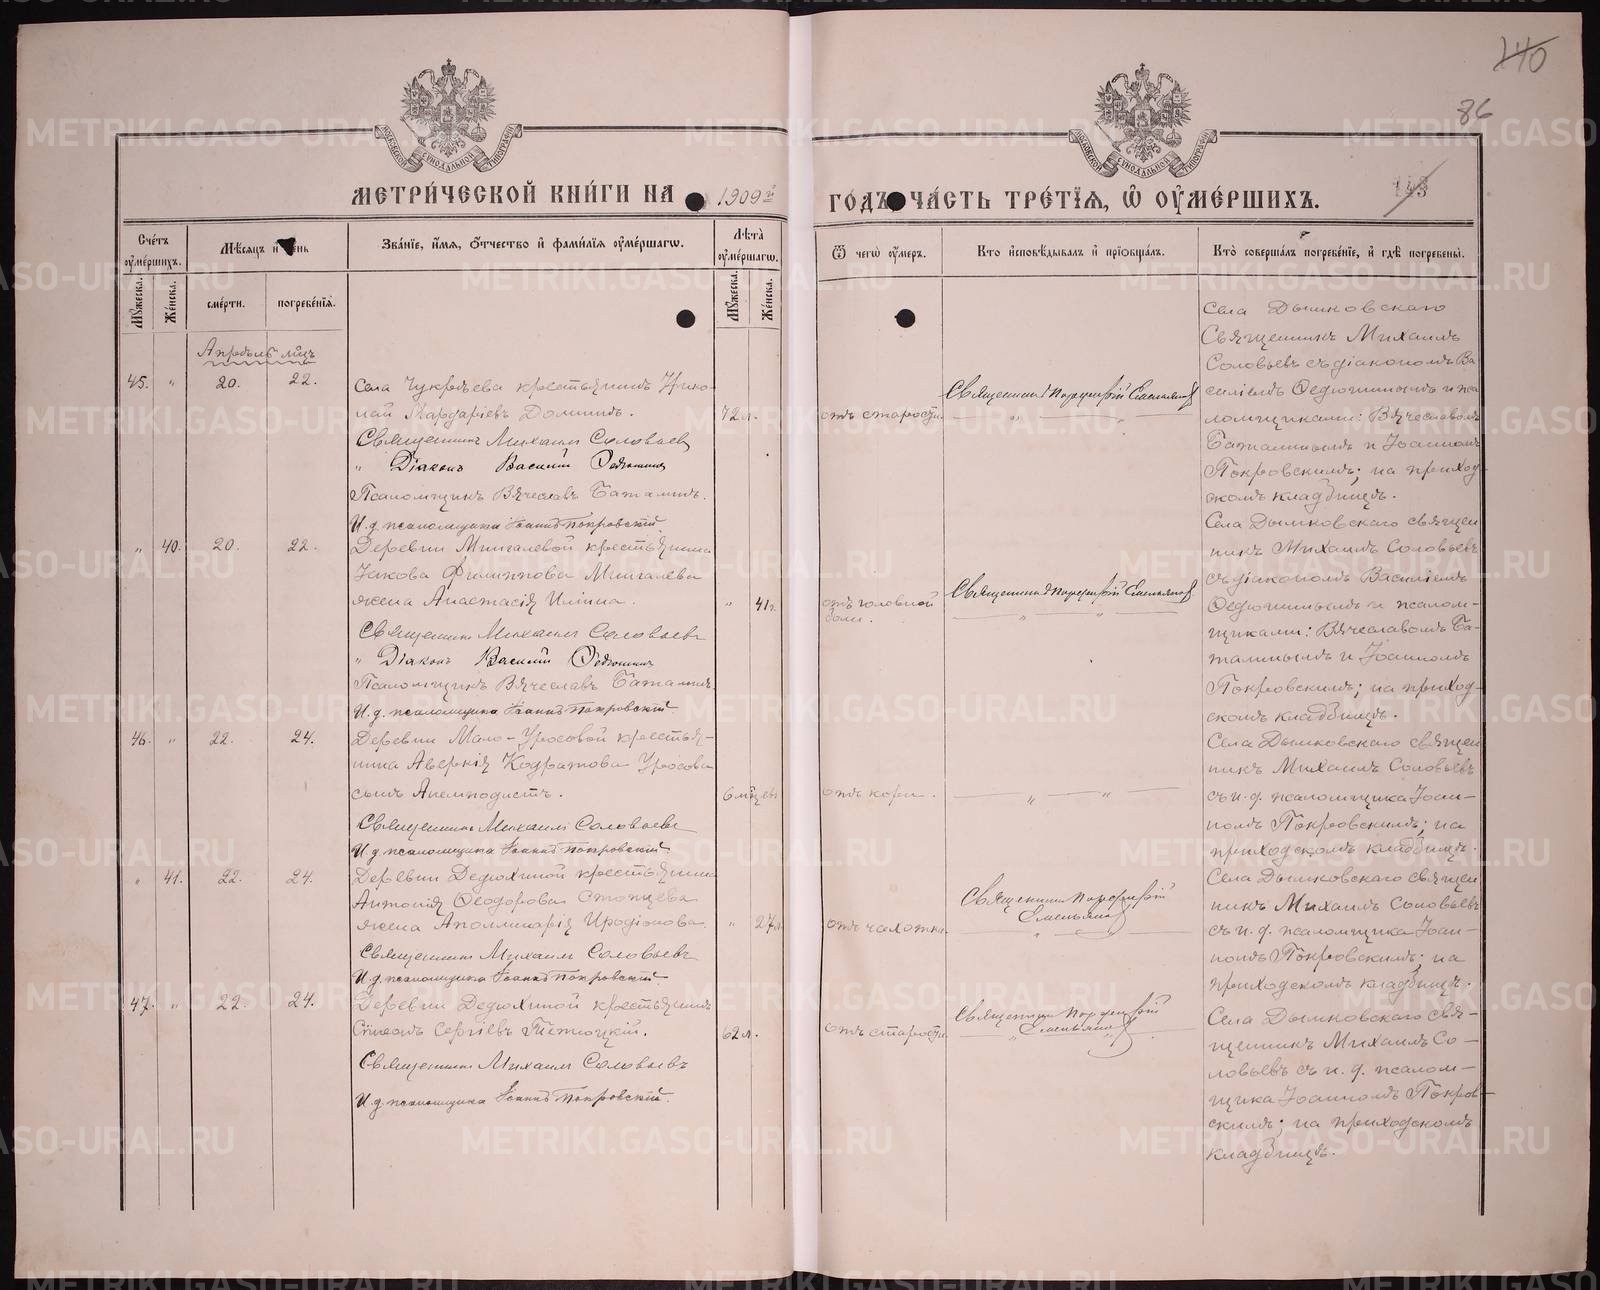 240
86
143
МЕТРИЧЕСКОЙ КНИГИ НА 1909й
ГОДЪ ЧАСТЬ ТРЕТІЯ, Ѿ ОУМЕРШИХЪ.
Счетъ оумершихъ.
Мужеска.
Женска.
Мѣсяцъ и день
смерти.
погребенія.
Званіе, имя, отчество и фамилія оумершагѡ.
Лѣта оумершагѡ.
Мужеска.
Женска.
Ѿ чегѡ оумеръ.
Кто исповѣдывалъ и пріобщалъ.
Кто совершалъ погребеніе, и гдѣ погребены.
Апрѣль мѣсяцъ
45. " 20. 22.
Села Чукрѣева крестьянинъ Нико-
лай Мардаріевъ Доминъ. 72 л.
Священникъ Михаилъ Соловьевъ
" Діаконъ Василій Ѳедюшинъ
Псаломщикъ Вячеславъ Баталинъ.
И. д. псаломщика Іоаннъ Покровскій.
отъ старости.
Священникъ Порфирій Емельяновъ
Села Дымковскаго
Священникъ Михаилъ
Соловьевъ съ діакономъ Ва-
силіемъ Ѳедюшинымъ и пса-
ломщиками: Вячеславомъ
Баталинымъ и Іоанномъ
Покровскимъ; на приход-
скомъ кладбищѣ.
" 40. 20. 22.
Деревни Мингалевой крестьянина
Іакова Филиппова Мингалева
жена Анастасія Ильина. " 41 г.
Священникъ Михаилъ Соловьевъ
" Діаконъ Василій Ѳедюшинъ
Псаломщикъ Вячеславъ Баталинъ.
И. д. псаломщика Іоаннъ Покровскій
отъ головной
боли.
Священникъ Порфирій Емельяновъ
Села Дымковскаго священ
никъ Михаилъ Соловьевъ
съ діакономъ Василіемъ
Ѳедюшинымъ и псалом-
щиками: Вячеславомъ Ба-
талинымъ и Іоанномъ
Покровскимъ; на приход-
скомъ кладбищѣ.
46. " 22. 24.
Деревни Мало-Уросовой крестья-
нина Аверкія Кодратова Уросова
сынъ Анемподистъ. 6 мѣсяцевъ
Священникъ Михаилъ Соловьевъ
И. д. псаломщика Іоаннъ Покровскій
отъ кори.
Села Дымковскаго священ
никъ Михаилъ Соловьевъ
съ и. д. псаломщика Іоан-
номъ Покровскимъ; на
приходскомъ кладбищѣ.
" 41. 22. 24.
Деревни Дедюхиной крестьянина
Антонія Ѳеодорова
жена Аполлинарія Иродіонова. " 27 л.
Священникъ Михаилъ Соловьевъ
И. д. псаломщика Іоаннъ Покровскій.
отъ чахотки.
Священникъ Порфирій
Емельяновъ
Села Дымковскаго священ
никъ Михаилъ Соловьевъ
съ и. д. псаломщика Іоан-
номъ Покровскимъ; на
приходскомъ кладбищѣ.
47. " 22. 24.
Деревни Дедюхиной крестьянинъ
Сімеонъ Сергіевъ 62 л.
Священникъ Михаилъ Соловьевъ
И. д. псаломщика Іоаннъ Покровскій.
отъ старости.
Священникъ Порфирій
Емельяновъ
Села Дымковскаго Свя-
щенникъ Михаилъ Со-
ловьевъ съ и. д. псалом-
щика Іоанномъ Покров-
скимъ; на приходскомъ
кладбищѣ.
METRIKI.GASO-URAL.RU